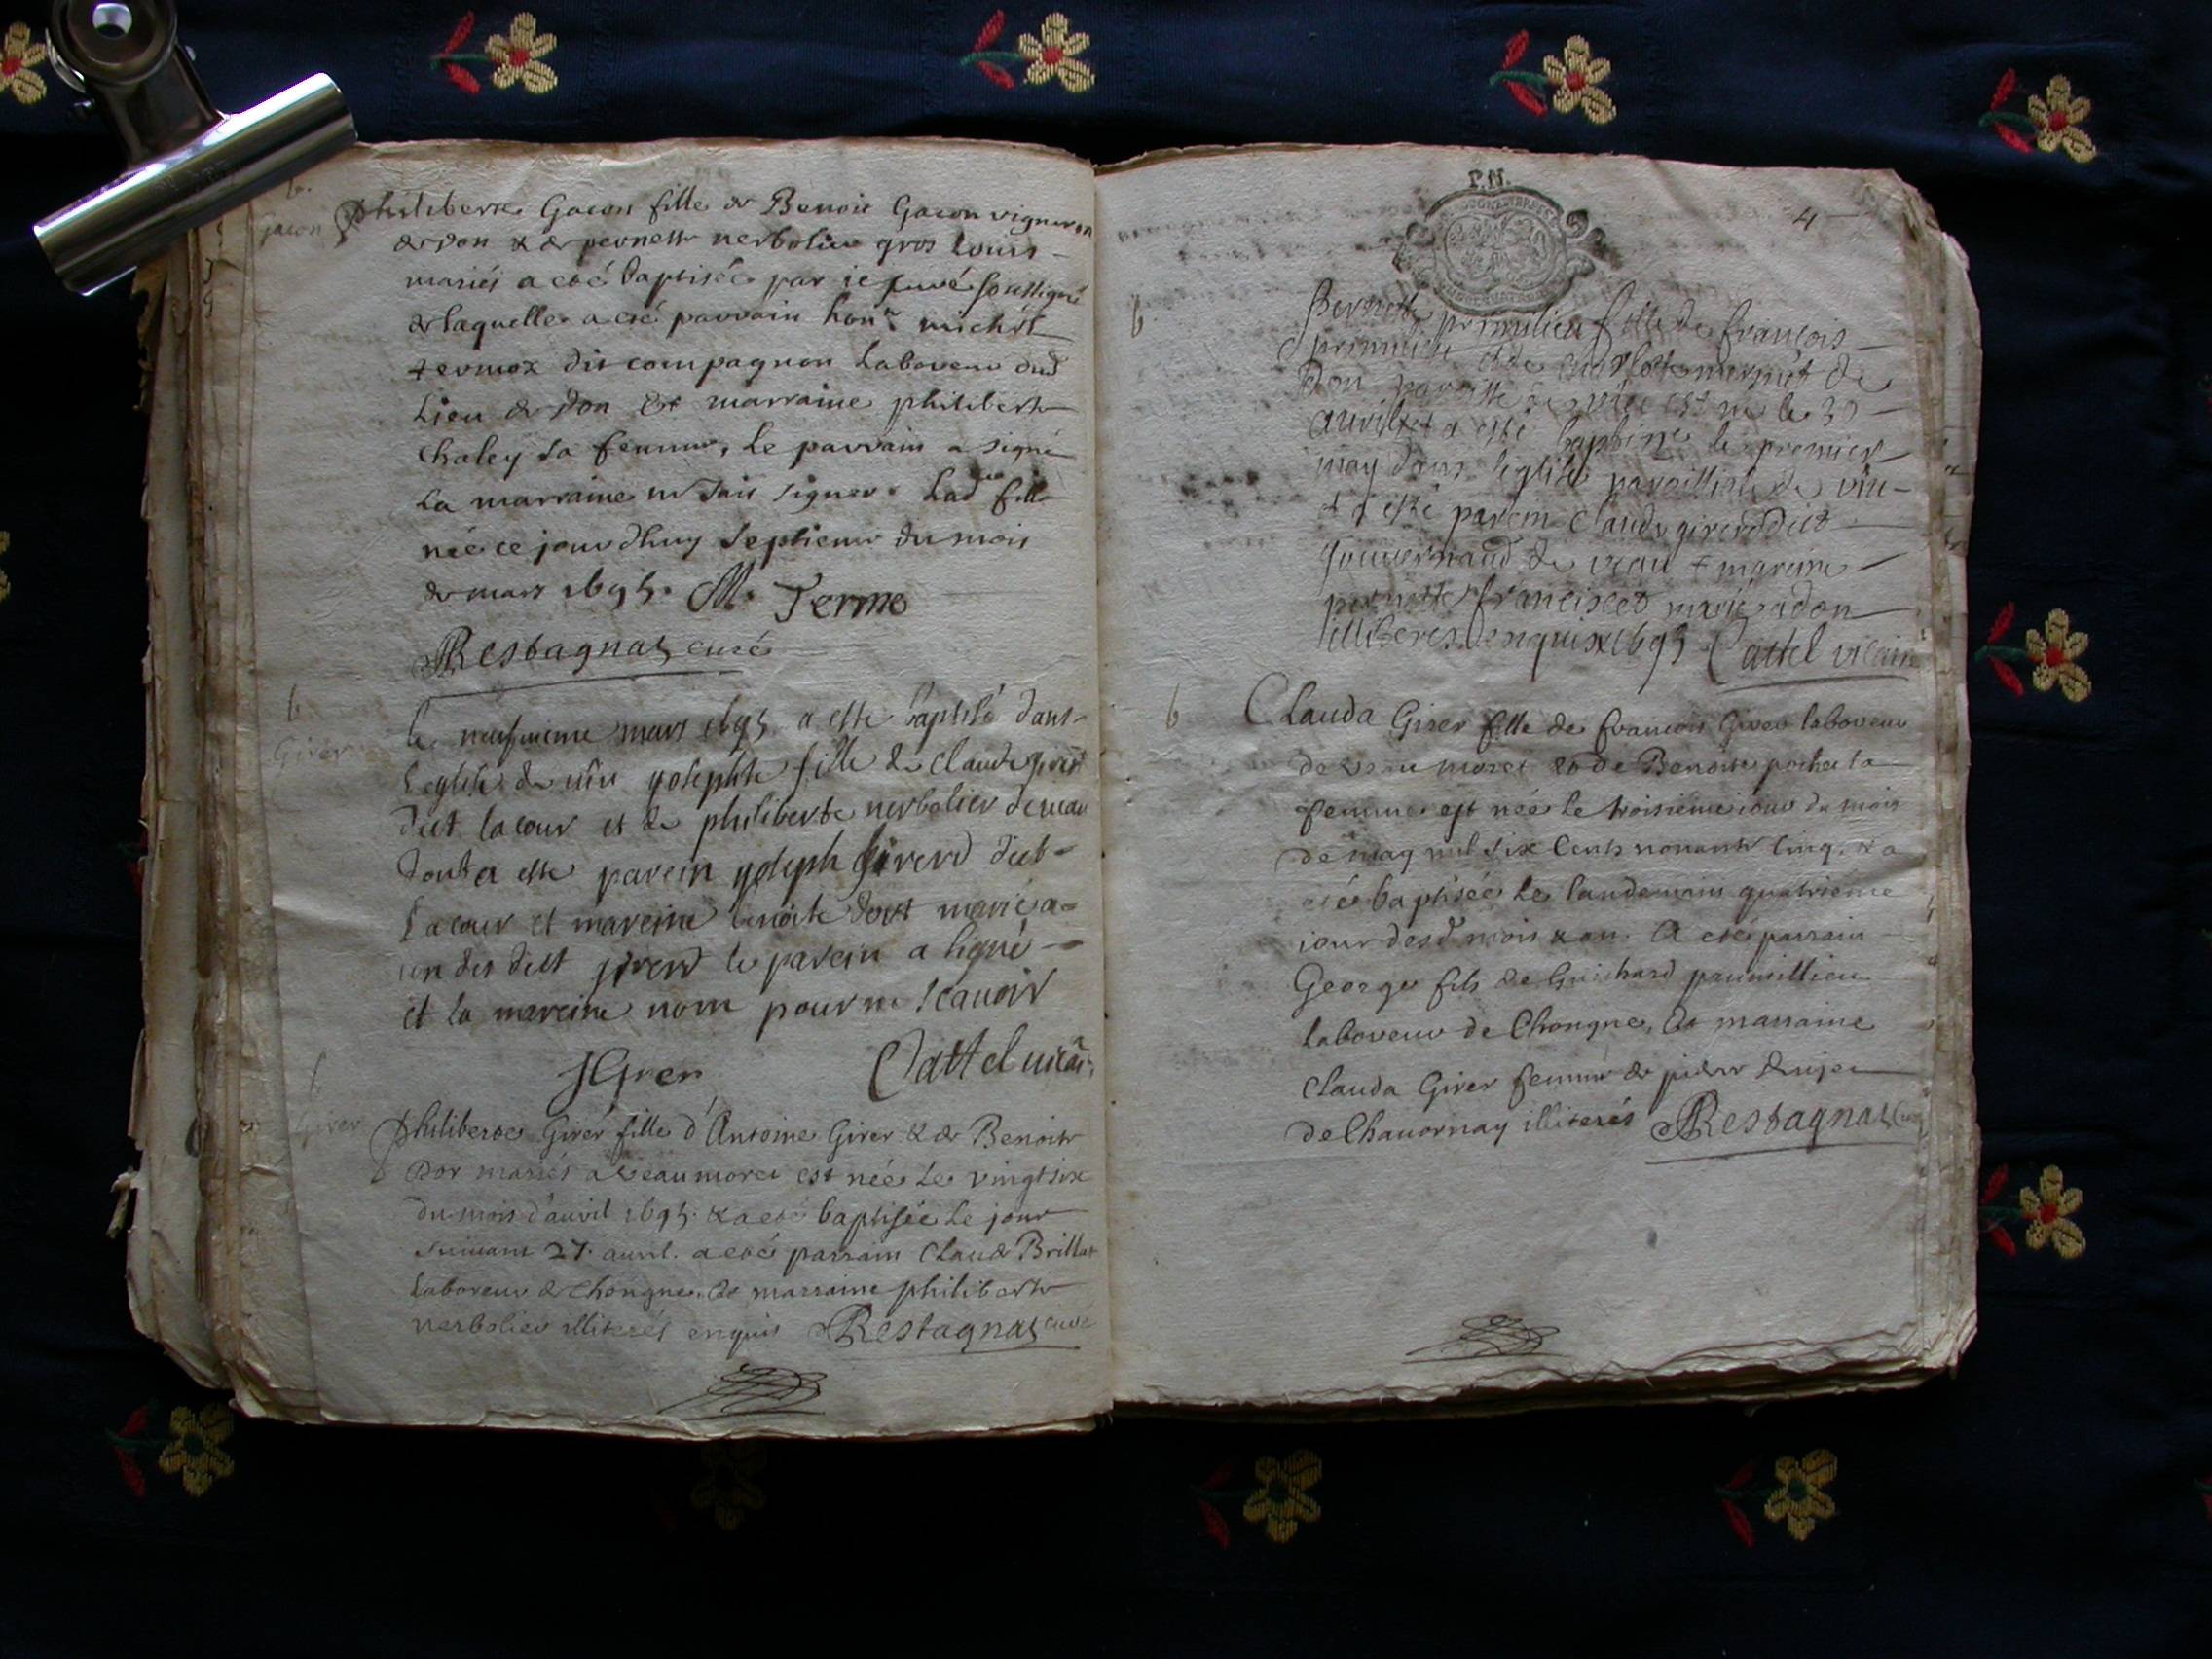 b.
Gacon
Philiberte Gacon fille de Benoit Gacon vigneron
de don & de pernette nerbolier gros Louis
mariés a eté baptisée par je curé soussigné
de laquelle a eté parrain hon.e michel
termoz dit compagnon Laboureur dud
Lieu de don Et marraine philiberte
Chaley sa femme, Le parrain a signé
La marraine ne sait signer. Lad fille
née ce jourdhuy septieme du mois
de mars 1695. M. Termo
Restagnat curé
b
Girer
le neufvieme mars 1695 a esté baptisé dans
l'eglise de viu yosephte fille de claude girerd
dict lacour et de philiberte nerbolier de veau
dont a esté parein yoseph Girerd dict
Lacour et mareine benoite dort marié a
un des dict girerd le parein a signé
et la mareine nom pour ne scavoir
JGirer Cattel vicai.
b
Girer
Philiberte Girer fille d'Antoine Girer & de Benoite
Dor mariés a Veaumoret est née Le vingt six
du mois d'avril 1695. & a eté baptisée Le jour
suivant 27. avril. a eté parrain Claude Brillat
Laboureur de Chongne. Et marraine philiberte
nerbolier illiterés enquis Restagnat curé
P.N.
4
b
Pernette primilieu fille de francois
primilieu et de mermet de
Don paroisse de viu est né le 30
avril et a esté baptiné le premier
may dans l'eglise paroissiale de viu
et a esté parein Claude girerd dict
gouvernand de veau et mareine
pernette francisced marié a don
illiteres enquis 1695 Cattel vicair
b
Clauda Girer fille de francois Girer laboureur
de veau moret et de Benoite pochet sa
femme est née le troisieme jour du mois
de may mil six cents nonante cinq. & a
eté baptisée Le landemain quatrieme
jour desd mois & an. A eté parrain
George fils de Guichard prumillieu
laboureur de Chongne, Et marraine
Clauda Girer femme de pierre
de Chavornay illiterés Restagnat Curé